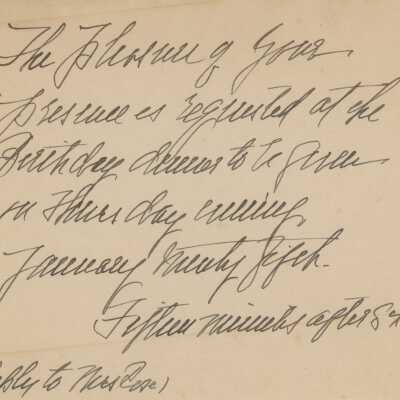 The pleasure of your
presence is requested at the
Birthday dinner to be given
on Thursday evening,
January twenty fifth.
Fifteen minutes after
to Mrs